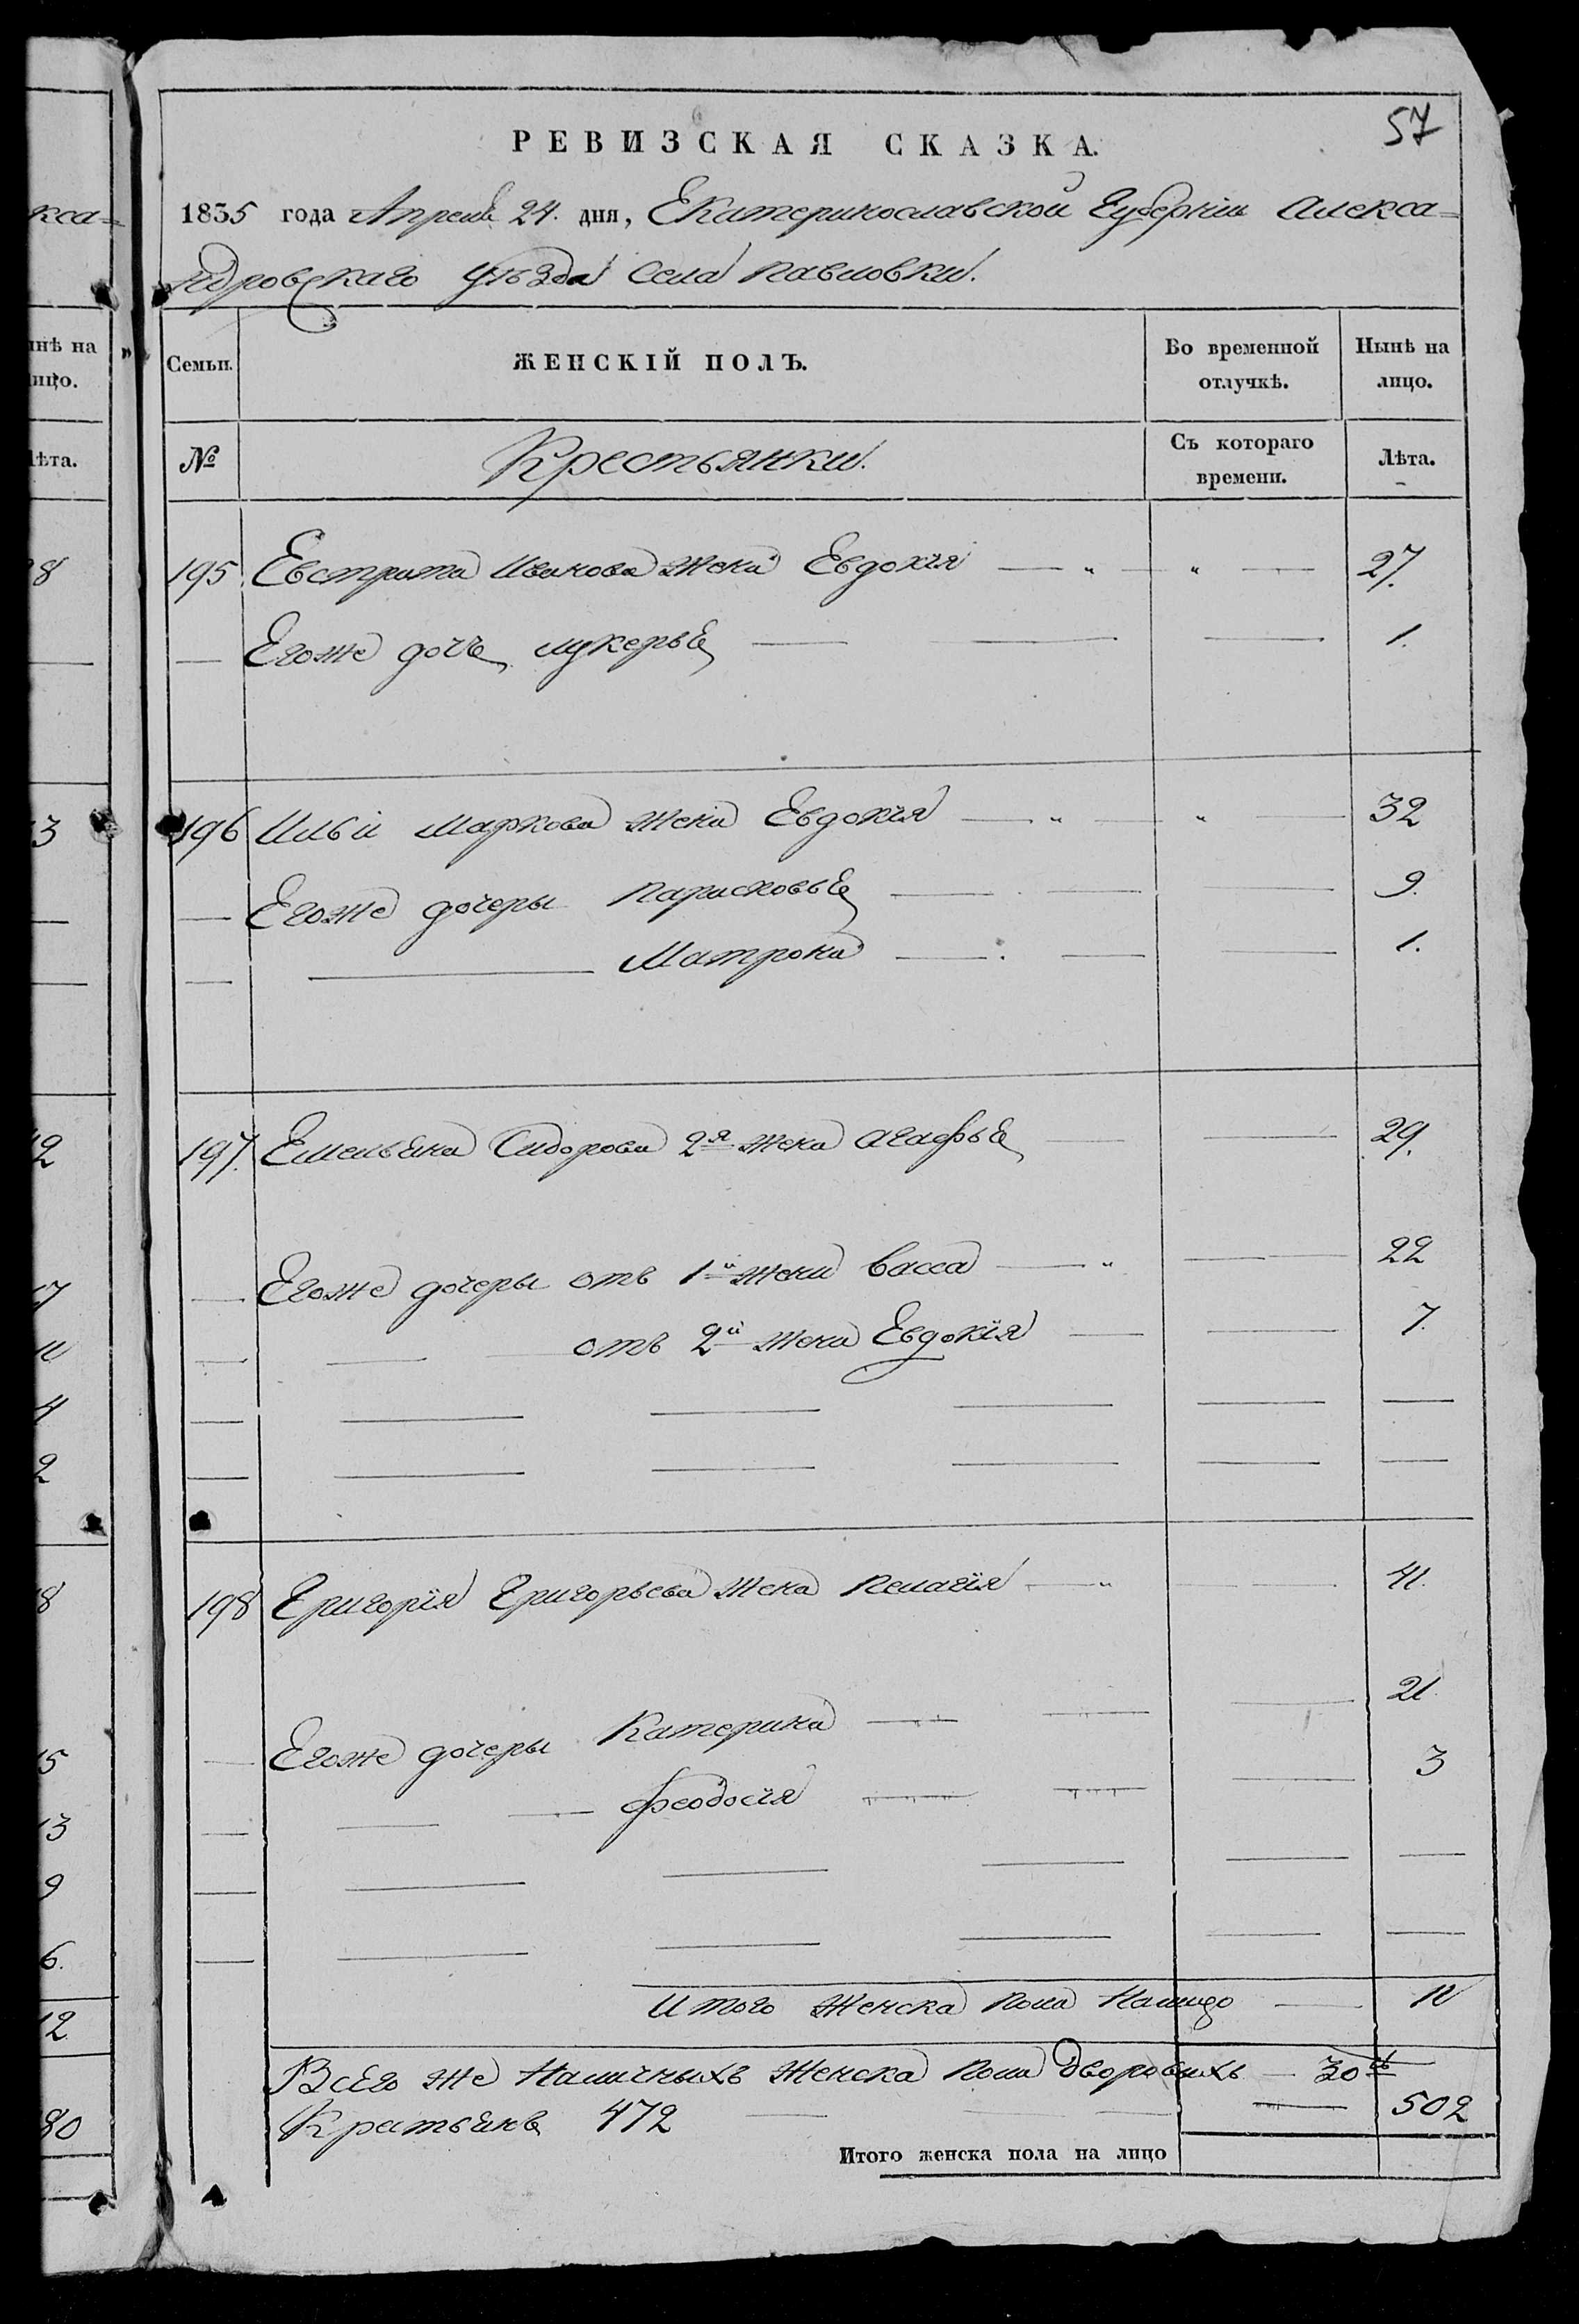 57
РЕВИЗСКАЯ СКАЗКА.
1835 года Апреля 24. дня, Екатеринославской Губернии Алекса=
ндровскаго уѣзда Села Павловки.
Семьи. ЖЕНСКІЙ ПОЛЪ. Во временной отлучкѣ. Нынѣ на лицо.
№ Крестьянки. Съ котораго времени. Лѣта.
195 Евстрата Иванова жена Евдокія — " — " — 27.
— Егоже дочь Лукерья — — — 1.
196 Ильи Маркова жена Евдокія — " — " — 32
— Егоже дочеры Парасковья — — — 9.
— — Матрона — — — 1.
197. Емельяна Сидорова 2я жена Агафья — — 29.
— Егоже дочеры отъ 1й жены Васса — " — 22
— — отъ 2й жены Евдокія — — 7.
198 Григорія Григорьева жена Пелагія — " — 41.
— Егоже дочеры Катерина — — — 21.
— — Феодосія — — — 3
Итого женска пола налицо — 11
Всего же наличныхъ женска пола дворовыхъ — 30ть
Крстьянъ 472 — — — — 502
Итого женска пола на лицо
кса=
инѣ на
лицо.
лѣта.
8
3
2
7
11
4
2
8
5
13
9
6.
12
80